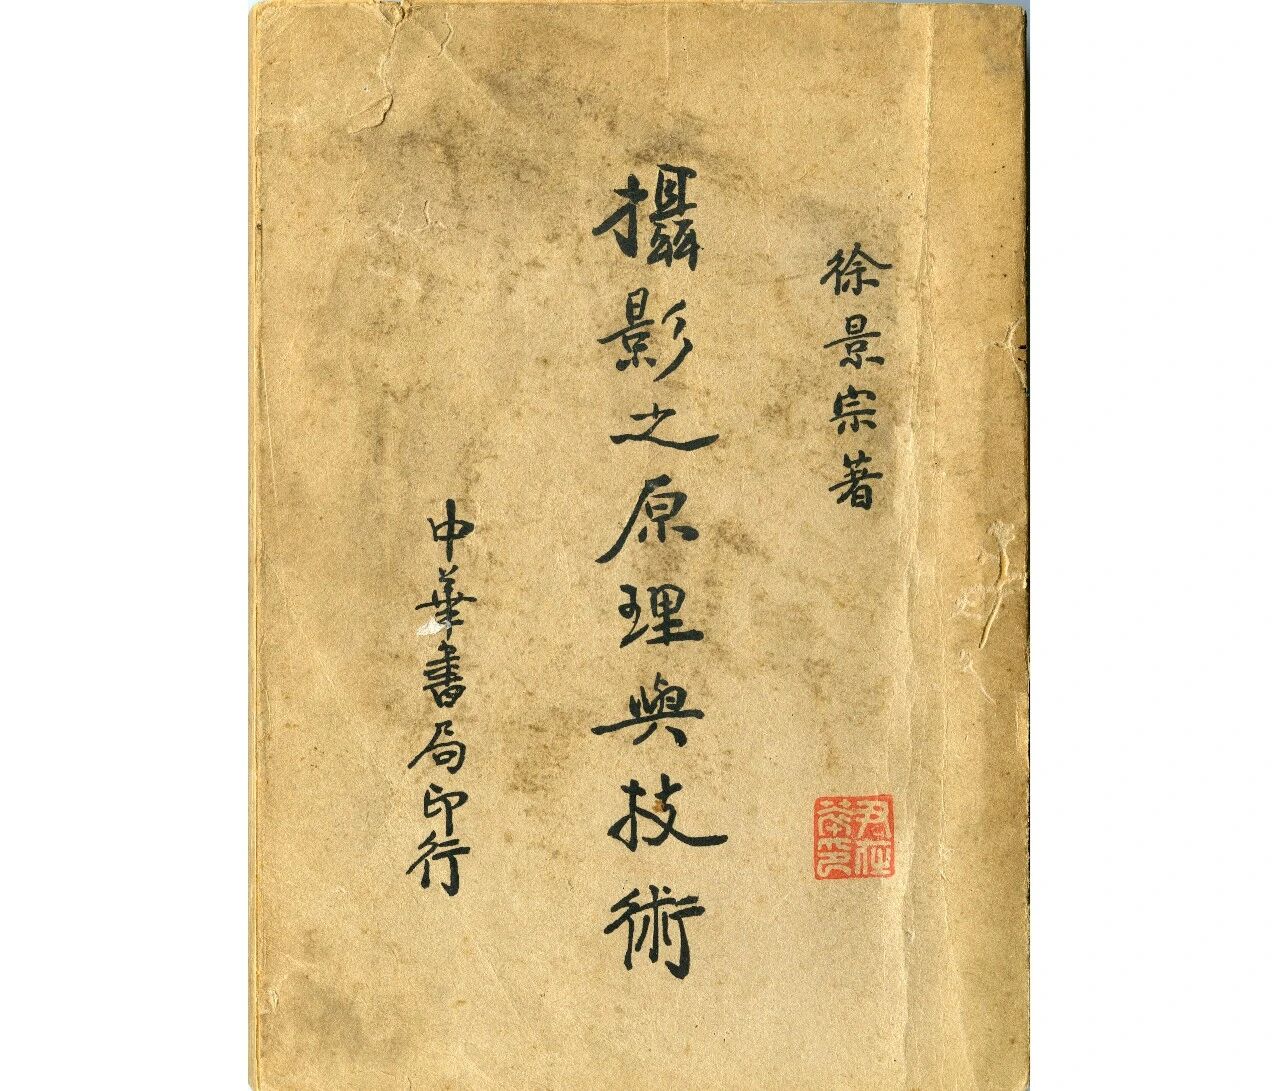 徐景宗著
攝影之原理與技術
中華書局印行